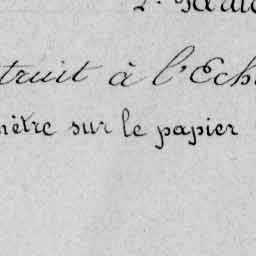 truit à l'Ech
mètre sur le papier